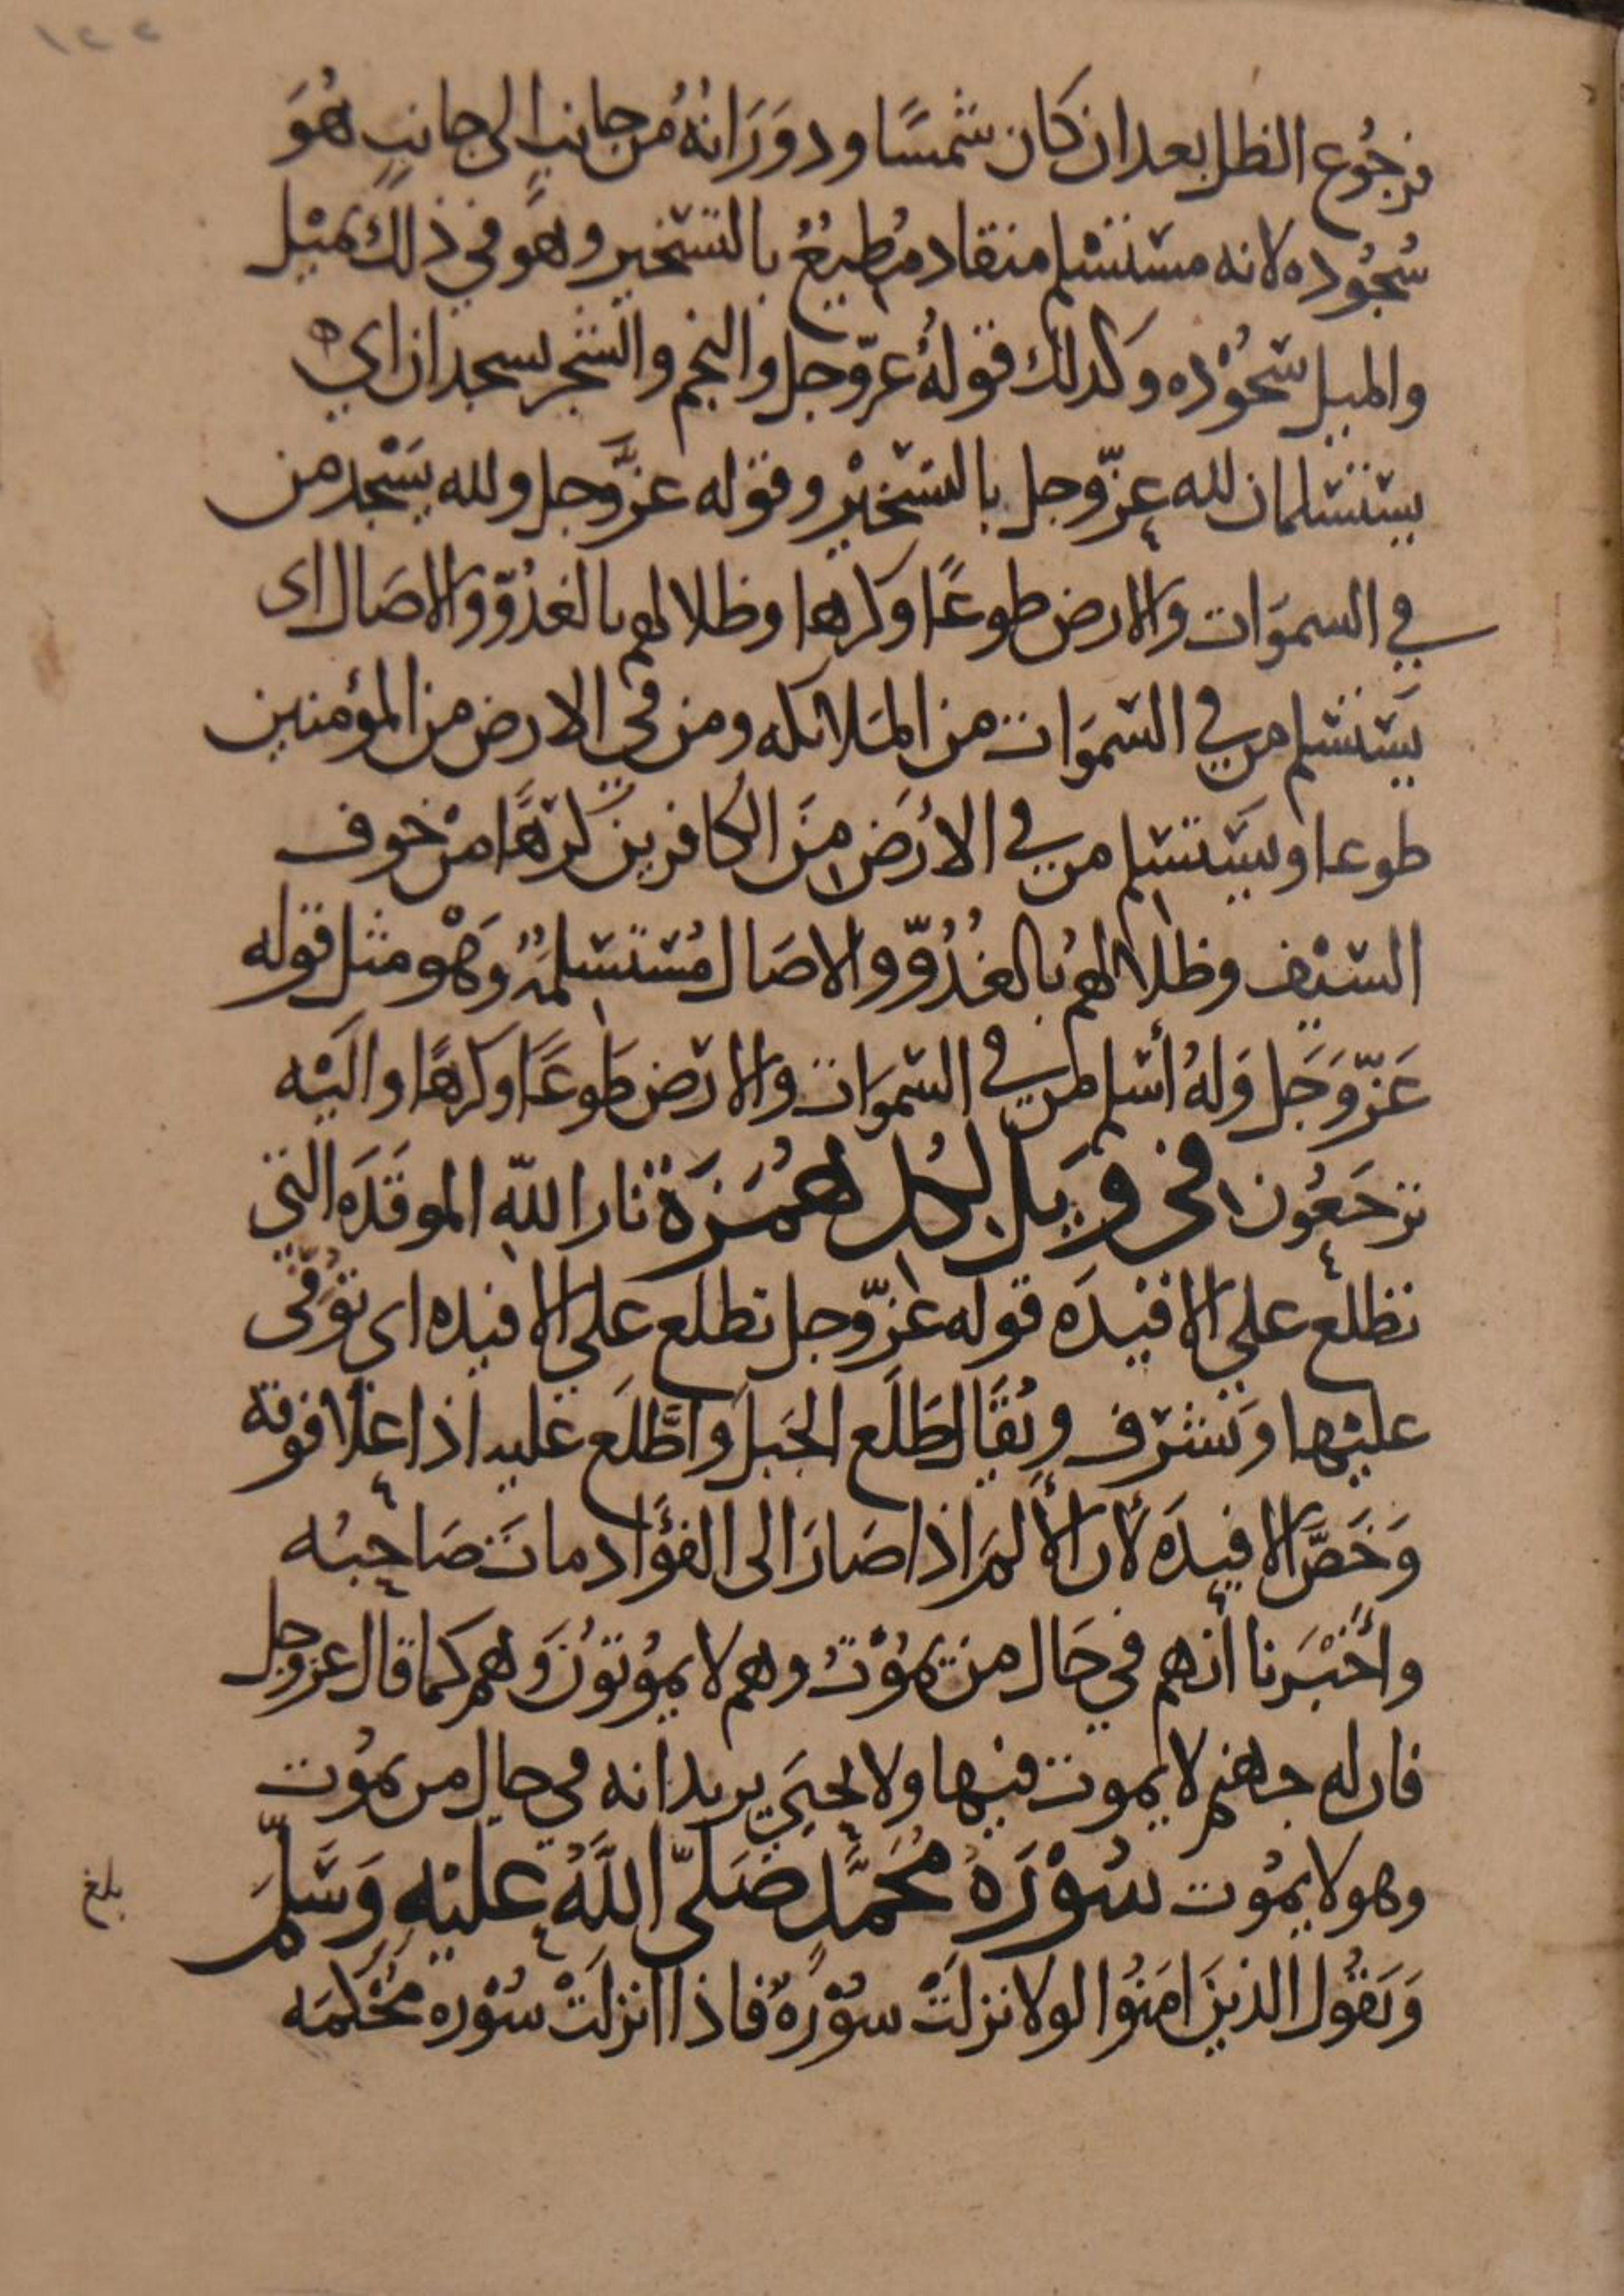 فرجُوع الظل بعد ان كان شمسًا ودوَرَانهُ من جانب الى جانب هُوَ
سُجُوده لانه مستسلم منقاد مُطيعُ بالتسخير وهو في ذلك يميل
والميل سجُوْده وكدلك قولهُ عزّوجل والنجم والشجر يسجدان اي
يستسلمان لله عزّوجل بالتسخيْر وقوله عزَّوجل ولله يسْجد من
في السموَات والارض طوعًا وكرها وظلالهم بالغدُوّ والاصَال اى
يَستسلم من في السّموَات من الملائكه ومن في الارض من المؤمنين
طوعا ويستسلم من في الارْضِ منَ الكافرين كرْهًا منْ خوف
السّيْف وظلالهُم بالغُدُوّ والاصَال مُستسلمَةٌ وَهْو مثل قوله
عَزّوَجَل وَلهُ أسْلم من في السّموَات والارْض طَوعًا وكرهًا واليْه
ترْجَعُون في ويل لكل هُمَزَة نار اللّه الموقدَه التي
تطلع على الافئِدَه قوله عزّوجل تطلع على الافئده اي تُوْفى
عليْها وَتشْرف ويُقَال طَلع الجَبل واطَّلَع عليه اذا عَلا فوقهُ
وَخَصَّ الافيدَه لأن الألمَ اذا صَارَ الى الفؤَاد ماتَ صَاحِبُه
وأخْبَرنا أنهم في حَال من يمُوْتُ وهم لا يموُتونَ وَهم كما قال عزوجل
فان له جهنم لا يموت فيها ولا يحيَي يريد انه في حال من يموُت
وهو لا يموُت سُوْرَهُ مُحمَّدٍ صَلىّ اللَّهُ عليْهِ وَسَّلم
وَيَقُول الذينَ امَنُوا لولا نزلَتْ سوُْرَةٌ فاذا انزلَتْ سُوْره محْكمَه
بلغ
١٢٢